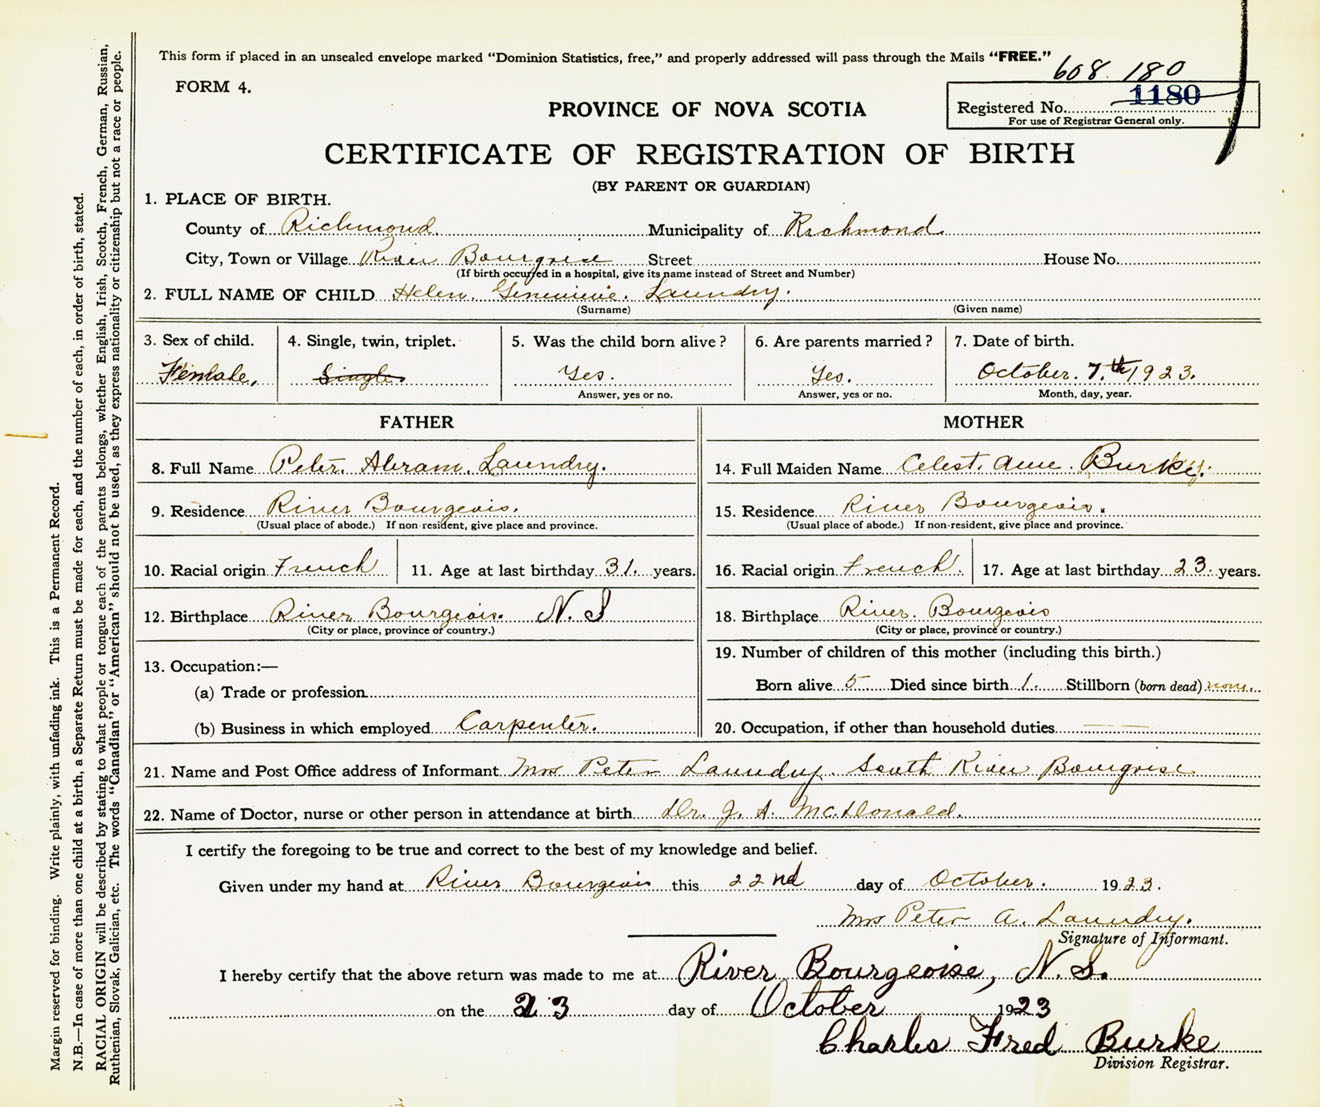 This form if placed in an unsealed envelope marked “Dominion Statistics, free,” and properly addressed will pass through the Mails “FREE.”
608 180
FORM 4.
Registered No. 1180
For use of Registrar General only.
PROVINCE OF NOVA SCOTIA
CERTIFICATE OF REGISTRATION OF BIRTH
(BY PARENT OR GUARDIAN)
1. PLACE OF BIRTH.
County of Richmond Municipality of Richmond
City, Town or Village River Bourgoise Street House No.
(If birth occurred in a hospital, give its name instead of Street and Number)
2. FULL NAME OF CHILD Helen. Genevieve. Laundry.
(Surname) (Given name)
3. Sex of child. 4. Single, twin, triplet. 5. Was the child born alive? 6. Are parents married? 7. Date of birth.
Female. Single. Yes. Yes. October. 7.th 1923.
Answer, yes or no. Answer, yes or no. Month, day, year.
FATHER MOTHER
8. Full Name Peter. Abram. Laundry. 14. Full Maiden Name Celest. Anne. Burke.
9. Residence River Bourgeois. 15. Residence River Bourgeois.
(Usual place of abode.) If non-resident, give place and province. (Usual place of abode.) If non-resident, give place and province.
10. Racial origin French 11. Age at last birthday 31. years. 16. Racial origin French. 17. Age at last birthday 23. years.
12. Birthplace River Bourgeois. N. S 18. Birthplace River. Bourgeois
(City or place, province or country.) (City or place, province or country.)
19. Number of children of this mother (including this birth.)
13. Occupation:—
Born alive 5 Died since birth 1. Stillborn (born dead) none.
(a) Trade or profession
(b) Business in which employed Carpenter. 20. Occupation, if other than household duties
21. Name and Post Office address of Informant Mrs Peter Laundry. South River Bourgoise
22. Name of Doctor, nurse or other person in attendance at birth Dr. J. A. McDonald.
I certify the foregoing to be true and correct to the best of my knowledge and belief.
Given under my hand at River Bourgeois this 22nd day of October. 1923.
Mrs Peter A. Laundry.
Signature of Informant.
I hereby certify that the above return was made to me at River Bourgeoise, N. S.
on the 23 day of October 1923
Charles Fred Burke
Division Registrar.
Margin reserved for binding. Write plainly, with unfading ink. This is a Permanent Record.
N.B.—In case of more than one child at a birth, a Separate Return must be made for each, and the number of each, in order of birth, stated.
RACIAL ORIGIN will be described by stating to what people or tongue each of the parents belongs, whether English, Irish, Scotch, French, German, Russian,
Ruthenian, Slovak, Galician, etc. The words “Canadian” or “American” should not be used, as they express nationality or citizenship but not a race or people.